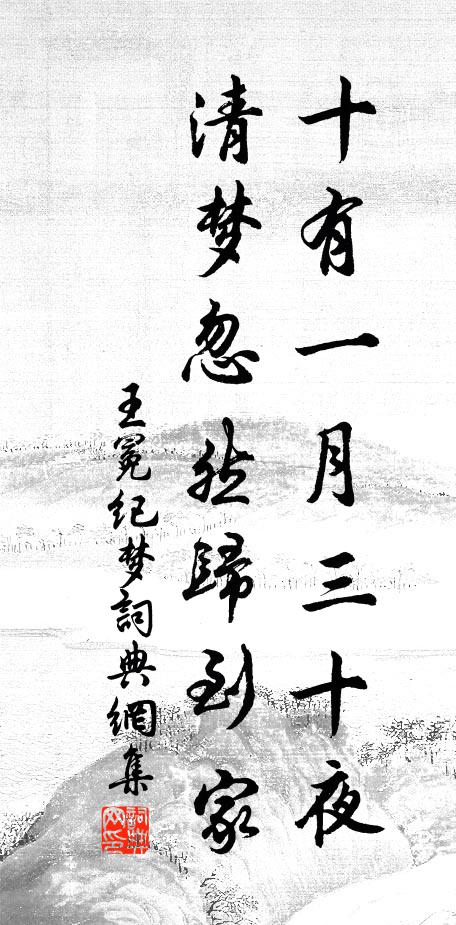 十有一月三十夜
清梦忽然歸到家
王冕纪梦詞典網集